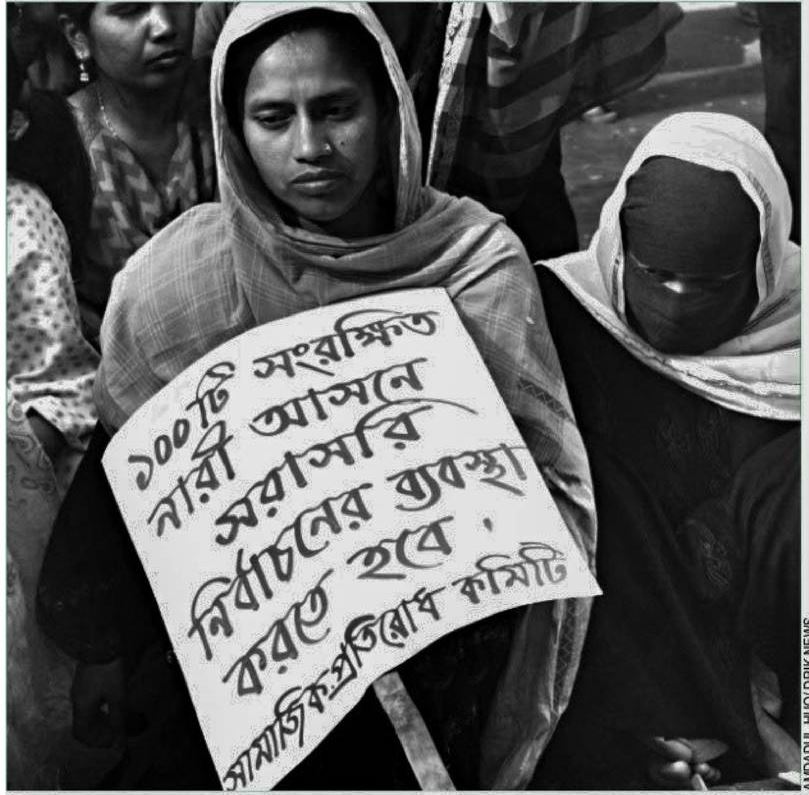 ১০০টি সংরক্ষিত
নারী আসনে
সরাসরি
নির্বাচনের ব্যবস্থা
করতে হবে .
সামাজিক প্রতিরোধ কমিটি
HUQ/ DRIK NEWS